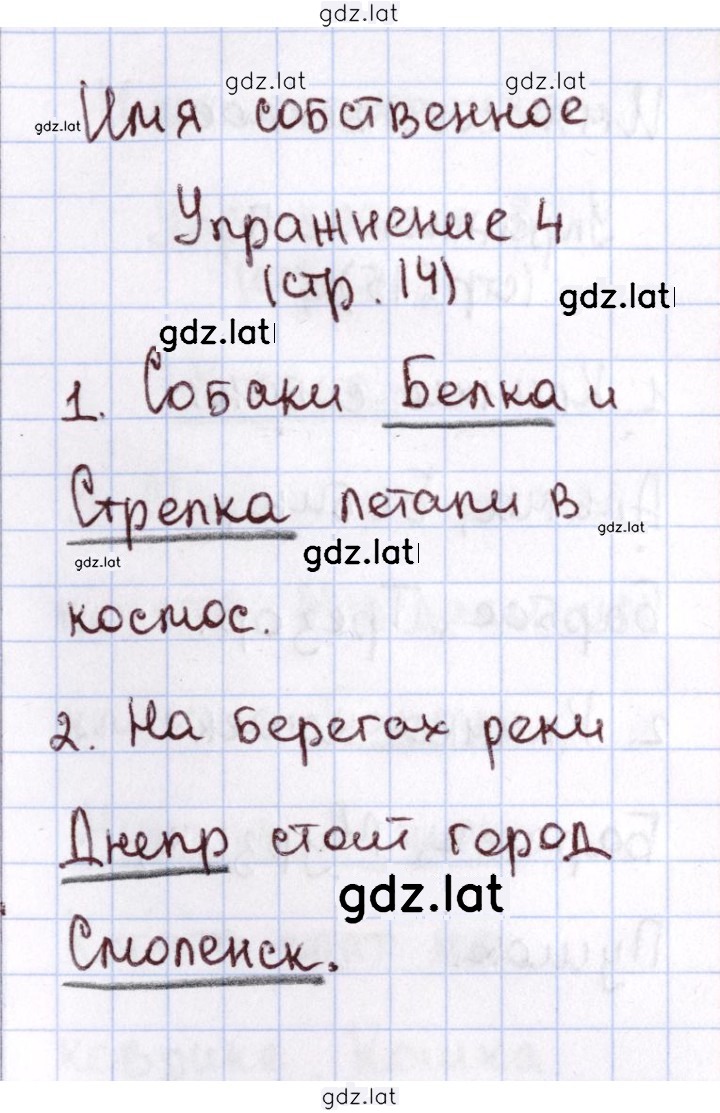 gdz.lat
gdz.lat gdz.lat
gdz.lat Имя собственное
Упражнение 4
(стр. 14)
gdz.lat
gdz.lat
1. Собаки Белка и
Стрелка летали в
gdz.lat
gdz.lat
gdz.lat
космос.
2. На берегах реки
Днепр стоит город
gdz.lat
Смоленск.
gdz.lat